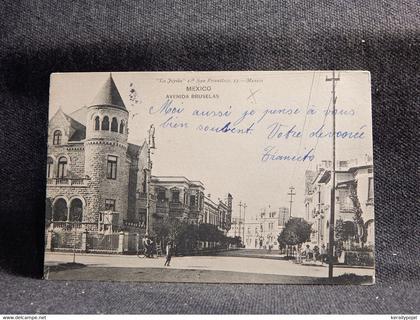 "La Joyita" 1ª San Francisco, 13.—Mexico
MEXICO
AVENIDA BRUSELAS
Moi aussi je pense à vous
bien souvent Votre devouée
Transito
©delcampe.net
kerailypojat